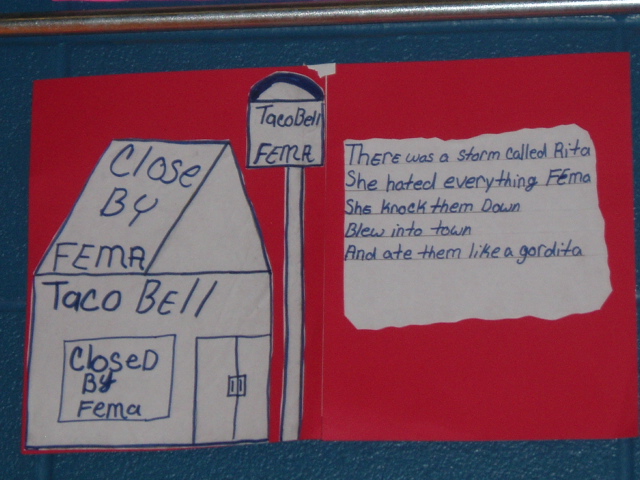 Close
By
FEMA
Taco Bell
Closed
By
Fema
Taco Bell
FEMA
There was a storm called Rita
She hated everything Fema
She knock them Down
Blew into town
And ate them like a gordita